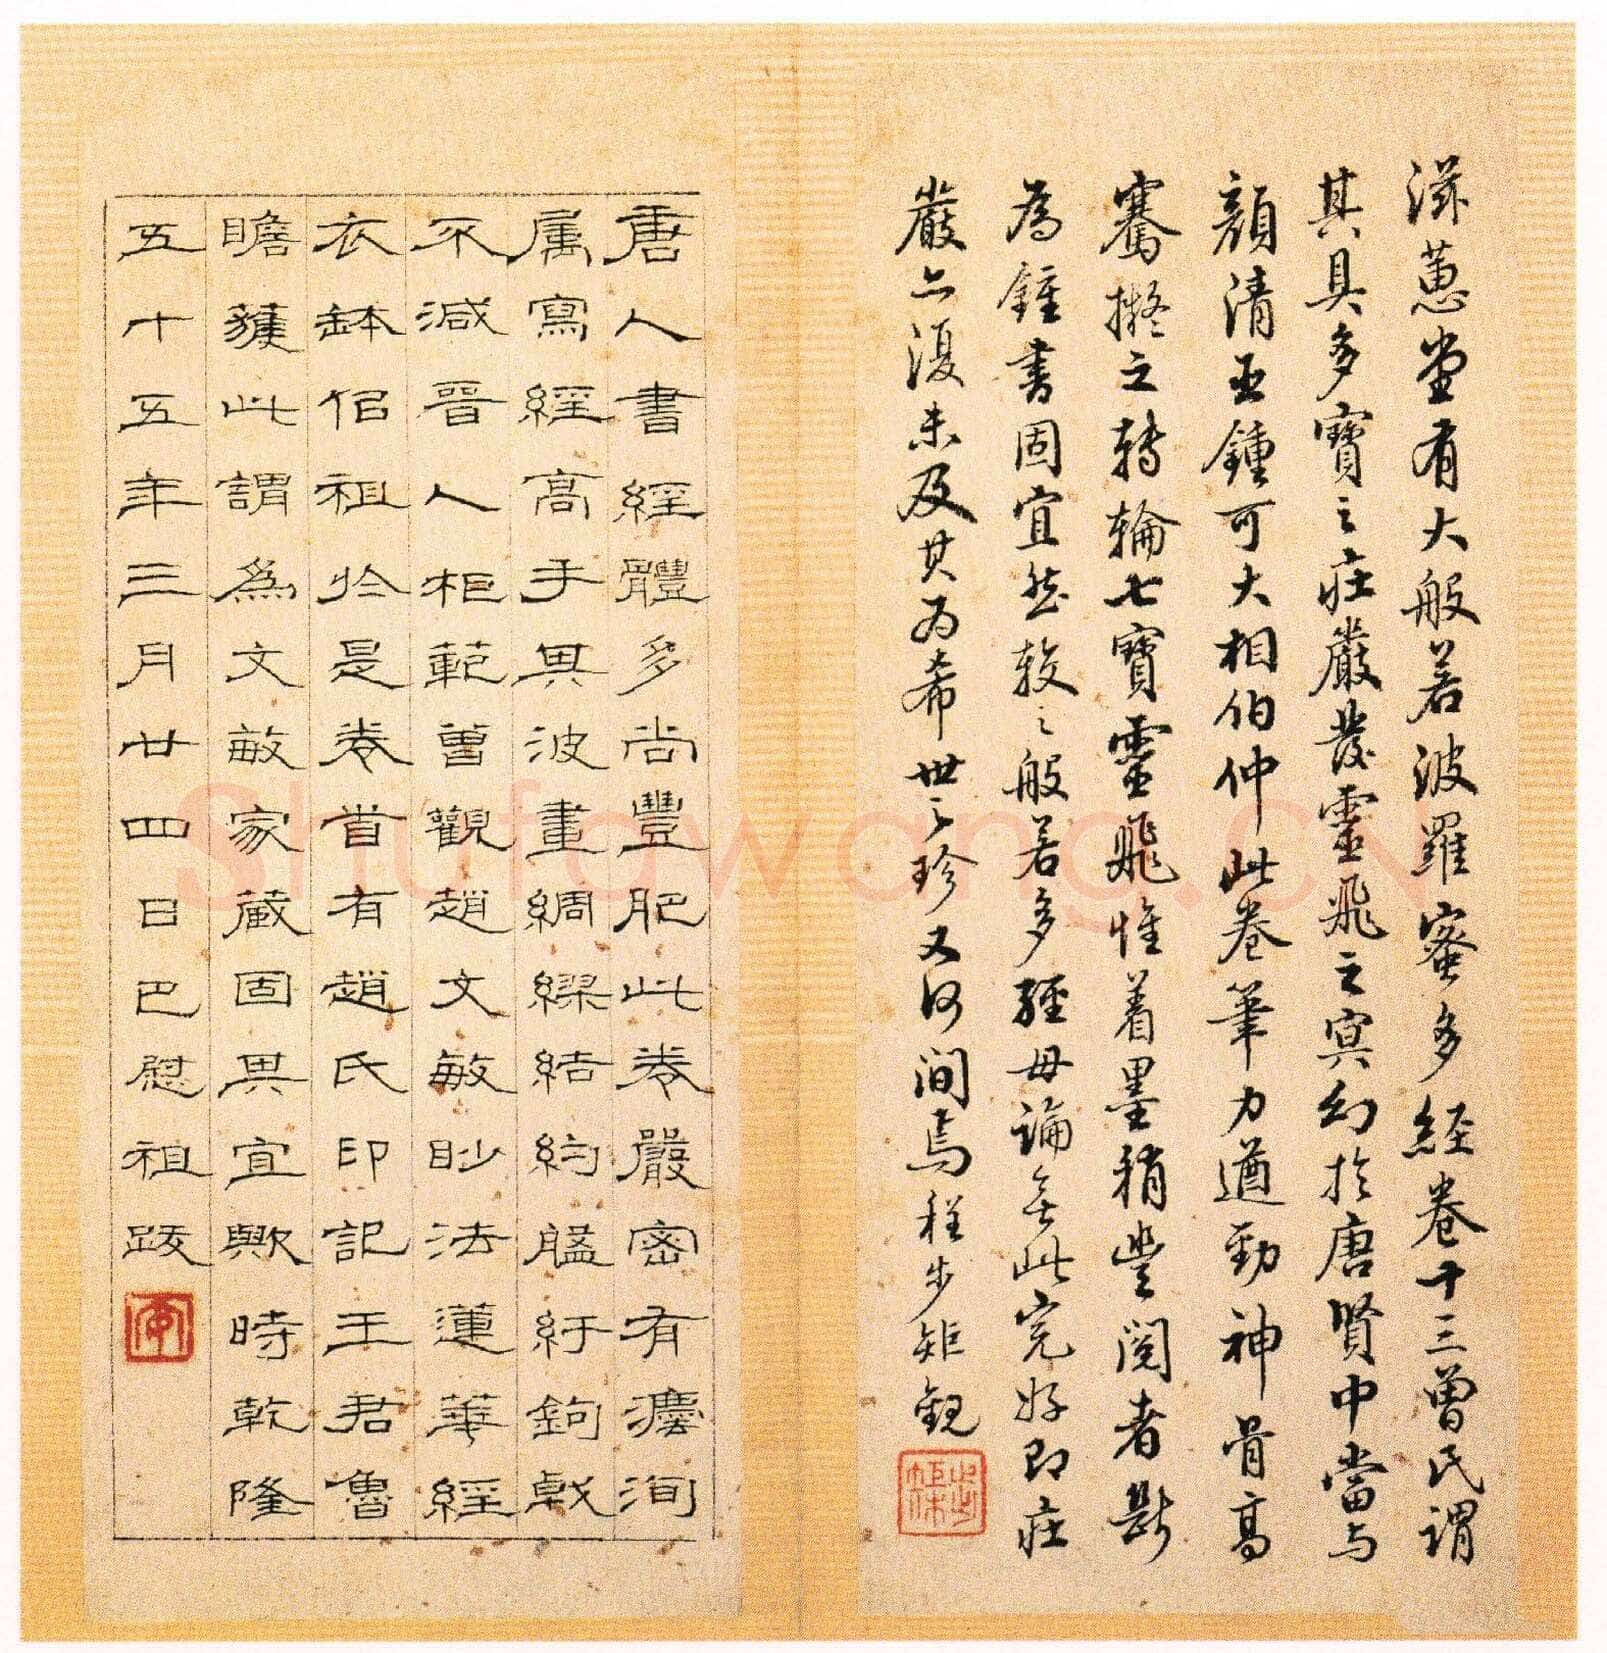 滋蕙堂有大般若波羅蜜多经卷十三曾氏谓
其具多寶之莊嚴發靈飛之寅幻於唐賢中當与
顏清臣鍾可大相伯仲此卷筆力遒勁神骨高
騫擬之轉輪七寶靈飛惟着墨稍豊閱者斷
為鍾書固宜然较之般若多經毋論無此完好即莊
嚴亦復未及其为希世之珍又何間焉程步矩觀
唐人書經體多尚豐肥此卷嚴密有瘦洵
属寫經高手異波畫綢繆結約豔紆鉤戟
不減晉人柜範曽觀趙文敏眇法蓮華經
衣鉢侶祖於是卷首有趙氏印記王君魯
瞻蘿此謂為文敏家藏固異宜歟時乾隆
五十五年三月廿四日巴慰祖跋
Shufawang.cn